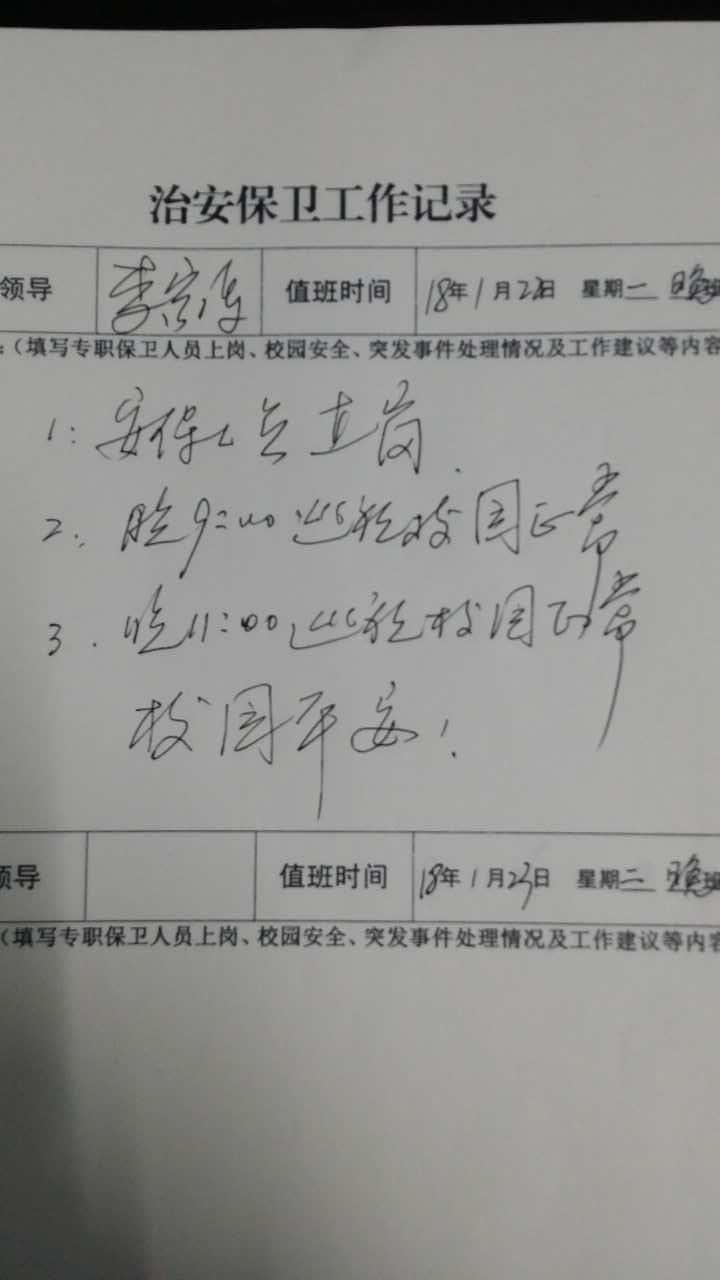 治安保卫工作记录
领导 李 值班时间 18年1月22日 星期一 晚班
:(填写专职保卫人员上岗、校园安全、突发事件处理情况及工作建议等内容
1: 安保人员在岗.
2. 晚9:00巡视校园正常
3. 晚11:00巡视校园正常
校园平安!
领导 值班时间 18年1月23日 星期二 晚班
(填写专职保卫人员上岗、校园安全、突发事件处理情况及工作建议等内容